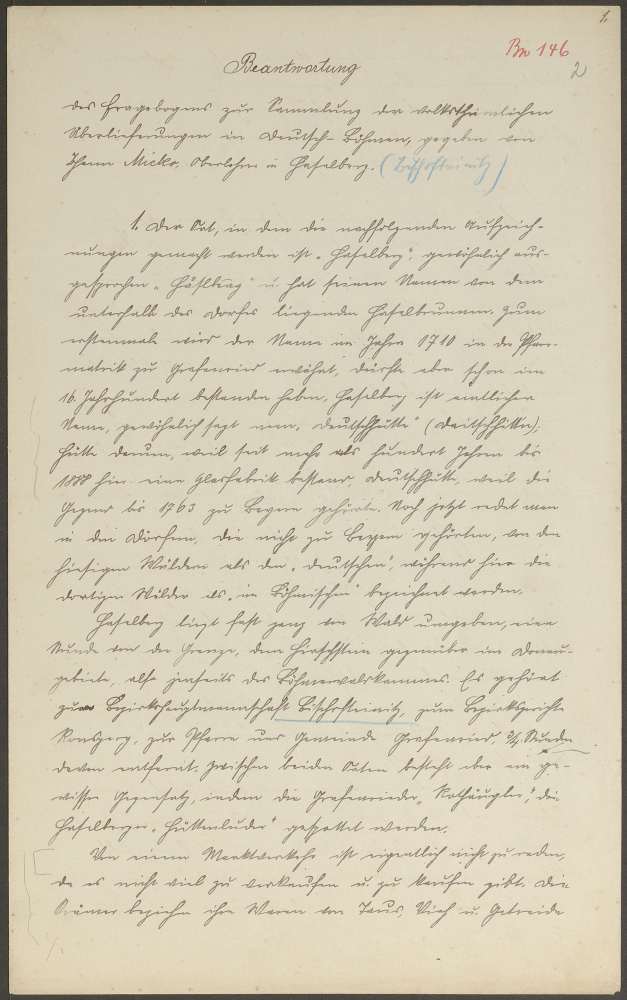 1.
Bn 146
2
Beantwortung
des Fragebogens zur Sammlung der volksthümlichen
Überlieferungen in Deutsch-Böhmen, gegeben von
Johann Micko, Oberlehrer in Haselberg. (Bischofteinitz)
1. Der Ort, in dem die nachfolgenden Aufzeich-
nungen gemacht werden ist „Haselberg", gewöhnlich aus-
gesprochen „ u. hat seinen Namen von dem
unterhalb des Dorfes liegenden Haselbrunnen. Zum
erstenmale wird der Name im Jahre 1710 in der Pfarr-
matrik zu Grafenried erwähnt, dürfte aber schon im
16. Jahrhundert bestanden haben. Haselberg ist amtlicher
Name, gewöhnlich sagt man „Deutschhütte" (Daitschhüttn);
Hütte darum, weil seit mehr als hundert Jahren bis
1888 hin eine Glasfabrik bestand, Deutschhütte, weil die
Gegend bis 1763 zu Bayern gehörte. Noch jetzt redet man
in den Dörfern, die nicht zu Bayern gehörten, von den
hiesigen Wäldern als den „deutschen", während hier die
dortigen Wälder als „im Böhmischen" bezeichnet werden.
Haselberg liegt fast ganz von Wald umgeben, eine
Stunde von der Grenze, dem Hirschstein gegenüber im Donau-
gebiete, also jenseits des Böhmerwaldkammes. Es gehört
zur Bezirkshauptmannschaft Bischofteinitz, zum Bezirksgerichte
Ronsperg, zur Pfarre und Gemeinde Grafenried, 3/4 Stunden
davon entfernt. Zwischen beiden Orten besteht aber ein ge-
wisser Gegensatz, indem die Grafenrieder „Rothäugler", die
Haselberger „Hüttenluder" gespottet werden.
Von einem Marktverkehr ist eigentlich nicht zu reden,
da es nicht viel zu verkaufen u. zu kaufen gibt. Die
Krämer beziehn ihre Waren von Taus, Vieh u. Getreide